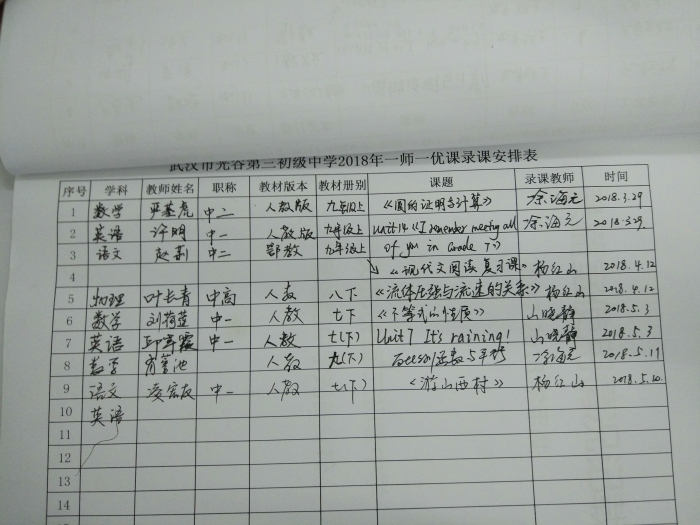 武汉市光谷第三初级中学2018年一师一优课录课安排表
序号 学科 教师姓名 职称 教材版本 教材册别 课题 录课教师 时间
1 数学 中二 人教版 九年级上 《圆的证明与计算》 余海元 2018.3.29
2 英语 许明 中一 人教版 九年级上 Unit 14 《I remember meeting all 余海元 2018.3.29
3 语文 赵莉 中二 鄂教 九年级上 of you in Grade 7》
4 《现代文阅读复习课》 杨红山 2018.4.12
5 物理 叶长青 中高 人教 八下 《流体压强与流速的关系》 杨红山 2018.4.12
6 数学 刘荷莲 中一 人教 七下 《不等式的性质》 山晓静 2018.5.3
7 英语 中一 人教 七(下) Unit 7 It's raining! 山晓静 2018.5.3
8 数学 人教 九(下) 余海元 2018.5.17
9 语文 凌宏友 中一 人教 七(下) 《游山西村》 杨红山 2018.5.10
10 英语
11
12
13
14